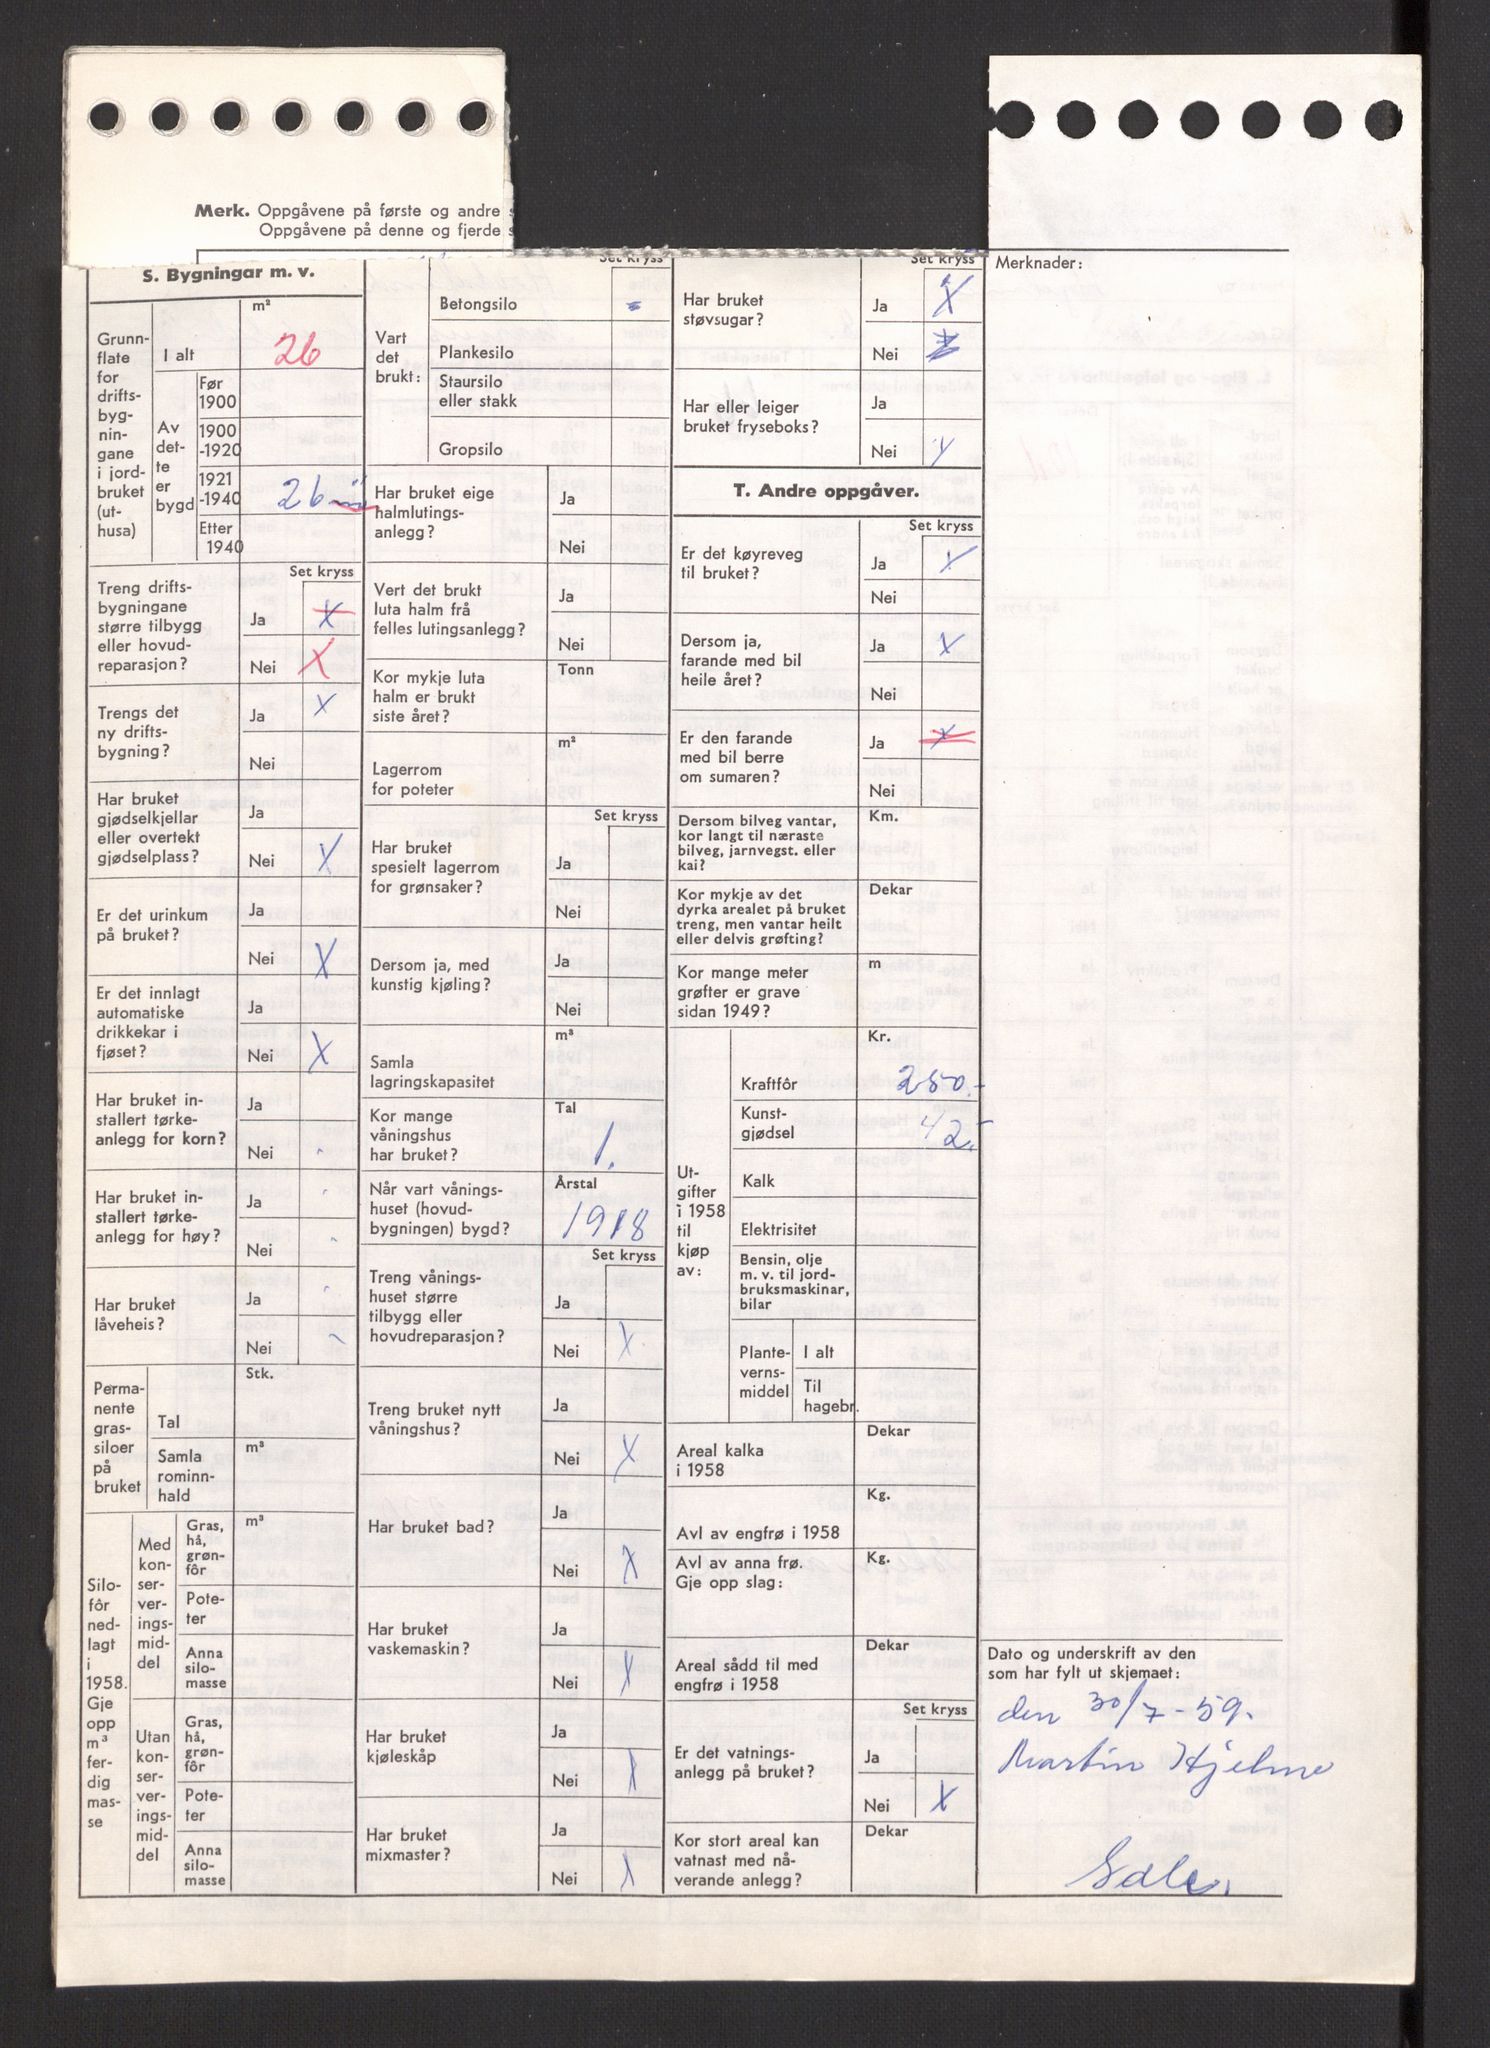 Merk. Oppgåvene på første og andre
Oppgåvene på denne og fjerde
S. Bygningar m. v.
m²
Grunn-
flate
for
drifts-
byg-
nin-
gane
i jord-
bruket
(ut-
husa)
I alt
26
Av
det-
te
er
bygd
Før
1900
1900
-1920
1921
-1940
26
Etter
1940
Set kryss
Treng drifts-
bygningane
større tilbygg
eller hovud-
reparasjon?
Ja X
Nei X
Trengs det
ny drifts-
bygning?
Ja X
Nei
Har bruket
gjødselkjellar
eller overtekt
gjødselplass?
Ja
Nei X
Er det urinkum
på bruket?
Ja
Nei X
Er det innlagt
automatiske
drikkekar i
fjøset?
Ja
Nei X
Har bruket in-
stallert tørke-
anlegg for korn?
Ja
Nei
Har bruket in-
stallert tørke-
anlegg for høy?
Ja
Nei
Har bruket
låveheis?
Ja
Nei
Perma-
nente
gras-
siloer
på
bruket
Stk.
Tal
m³
Samla
rominn-
hald
Silo-
fôr
ned-
lagt
i
1958.
Gje
opp
m³
fer-
dig
mas-
se
Med
kon-
ser-
ver-
ings-
mid-
del
m³
Gras,
hå,
grøn-
fôr
Pote-
ter
Anna
silo-
masse
Utan
kon-
ser-
ver-
ings-
mid-
del
Gras,
hå,
grøn-
fôr
Pote-
ter
Anna
silo-
masse
Set kryss
Vart
det
brukt:
Betongsilo
Plankesilo
Staursilo
eller stakk
Gropsilo
Har bruket eige
halmlutings-
anlegg?
Ja
Nei
Vert det brukt
luta halm frå
felles lutingsanlegg?
Ja
Nei
Kor mykje luta
halm er brukt
siste året?
Tonn
Lagerrom
for poteter
m²
Set kryss
Har bruket
spesielt lagerrom
for grønsaker?
Ja
Nei
Dersom ja, med
kunstig kjøling?
Ja
Nei
Samla
lagringskapasitet
m³
Kor mange
våningshus
har bruket?
Tal
1.
Når vart vånings-
huset (hovud-
bygningen) bygd?
Årstal
1918
Set kryss
Treng vånings-
huset større
tilbygg eller
hovudreparasjon?
Ja
Nei X
Treng bruket nytt
våningshus?
Ja
Nei X
Har bruket bad?
Ja
Nei X
Har bruket
vaskemaskin?
Ja
Nei X
Har bruket
kjøleskåp
Ja
Nei X
Har bruket
mixmaster?
Ja
Nei X
Set kryss
Har bruket
støvsugar?
Ja X
Nei X
Har eller leiger
bruket fryseboks?
Ja
Nei X
T. Andre oppgåver.
Set kryss
Er det køyreveg
til bruket?
Ja X
Nei
Dersom ja,
farande med bil
heile året?
Ja X
Nei
Er den farande
med bil berre
om sumaren?
Ja X
Nei
Dersom bilveg vantar,
kor langt til næraste
bilveg, jarnvegst. eller
kai?
Km.
Kor mykje av det
dyrka arealet på bruket
treng, men vantar heilt
eller delvis grøfting?
Dekar
Kor mange meter
grøfter er grave
sidan 1949?
m
Ut-
gifter
i 1958
til
kjøp
av:
Kr.
Kraftfôr
250.-
Kunst-
gjødsel
42.-
Kalk
Elektrisitet
Bensin, olje
m. v. til jord-
bruksmaskinar,
bilar
Plante-
verns-
middel
I alt
Til
hagebr.
Areal kalka
i 1958
Dekar
Avl av engfrø i 1958
Kg.
Avl av anna frø.
Gje opp slag:
Kg.
Areal sådd til med
engfrø i 1958
Dekar
Set kryss
Er det vatnings-
anlegg på bruket?
Ja
Nei X
Kor stort areal kan
vatnast med nå-
verande anlegg?
Dekar
Merknader:
Dato og underskrift av den
som har fylt ut skjemaet:
den 30/7-59.
Martin Hjelme